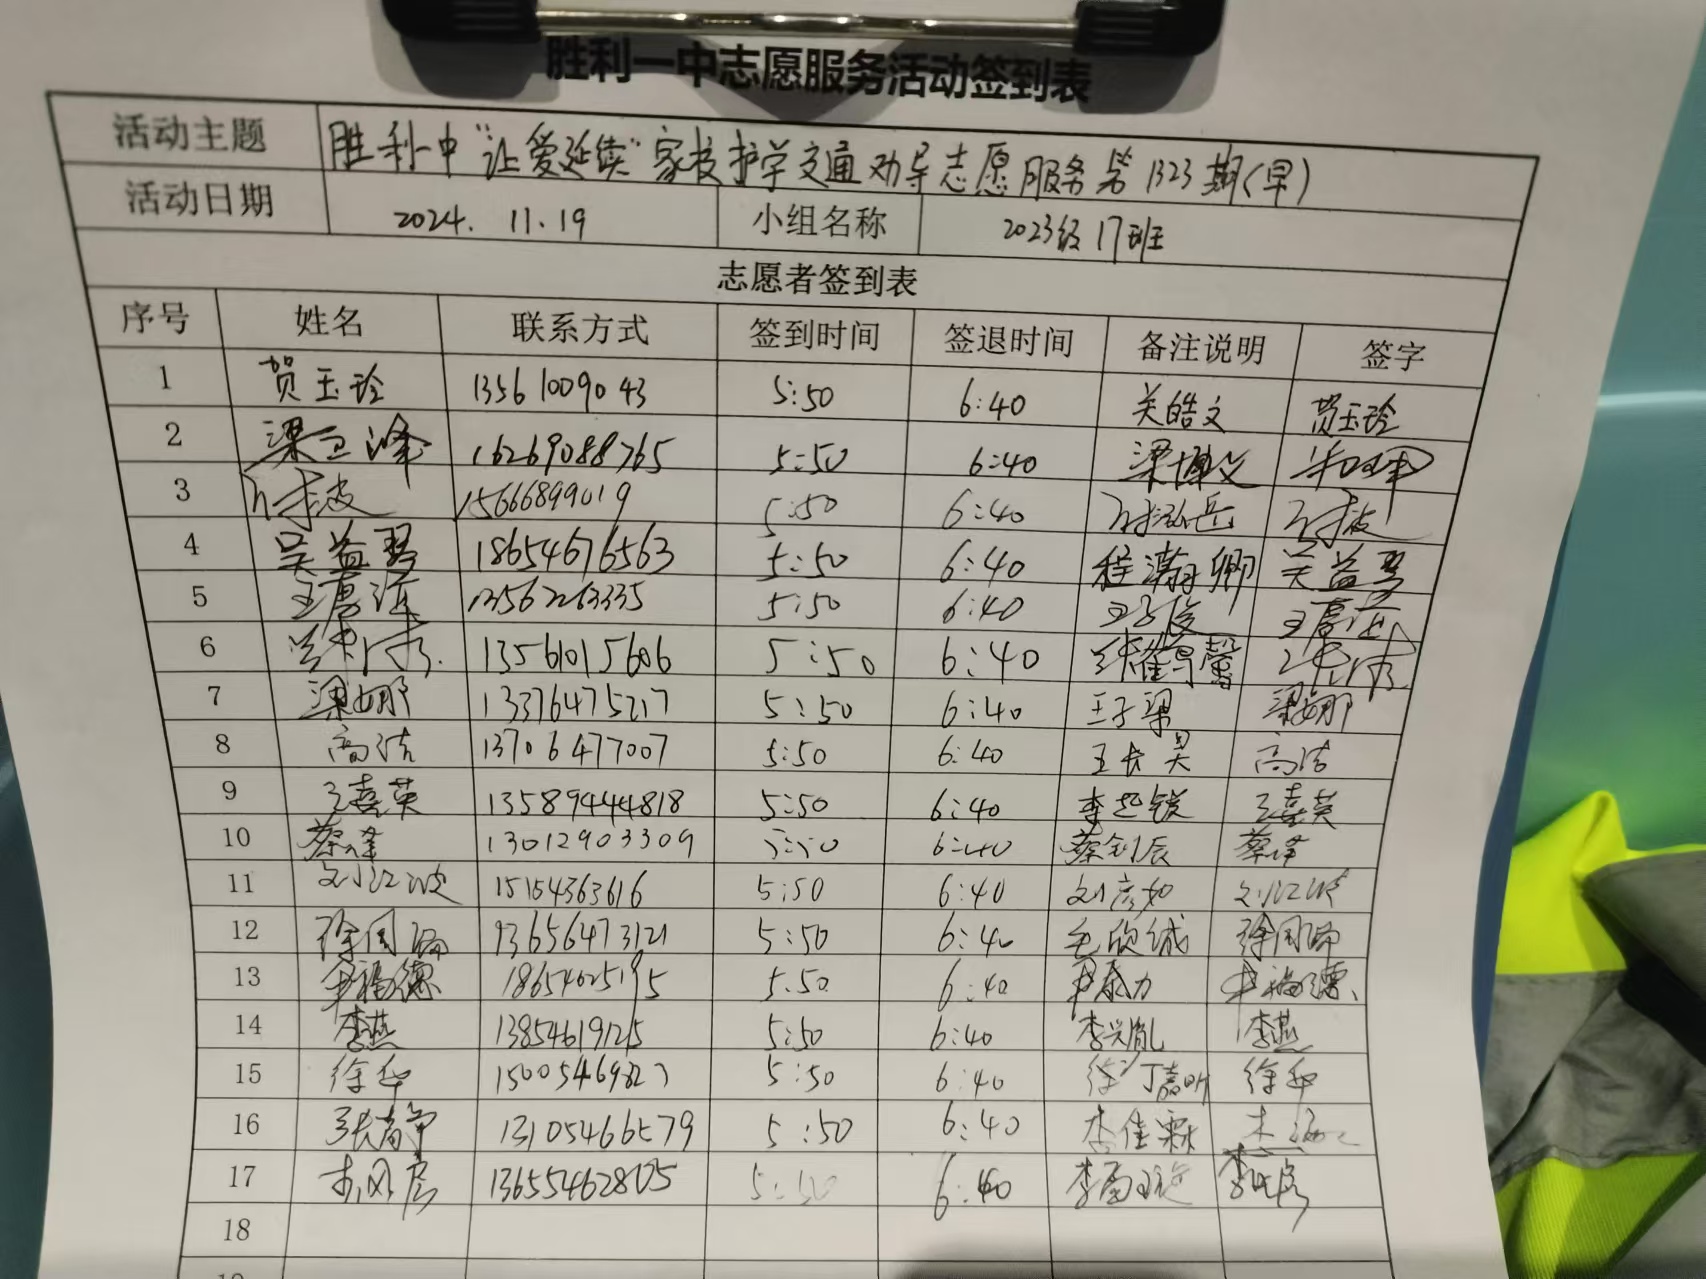 胜利一中志愿服务活动签到表
活动主题 胜利一中"让爱延续"家校护学交通劝导志愿服务第1323期(早)
活动日期 2024.11.19 小组名称 2023级17班
志愿者签到表
序号 姓名 联系方式 签到时间 签退时间 备注说明 签字
1 贾玉玲 13561009043 5:50 6:40 关皓文 贾玉玲
2 梁卫峰 16269088765 5:50 6:40 梁博义
3 15666899019 5:50 6:40
4 吴益琴 18654676563 5:50 6:40 程瀚卿 吴益琴
5 13562263335 5:50 6:40 王子俊
6 13561015606 5:50 6:40
7 梁娜 13376475217 5:50 6:40 王子梁 梁娜
8 高洁 13706477007 5:50 6:40 王长昊 高洁
9 王嘉英 13589444818 5:50 6:40 王嘉英
10 蔡峰 13012903309 5:50 6:40 蔡剑辰 蔡峰
11 刘江波 15154363616 5:50 6:40 刘彦如 刘江波
12 徐国瑞 5:50 6:40 毛欣诚 徐国瑞
13 尹福德 18654625195 5.50 6:40 尹泰力 尹福德
14 李燕 13854619125 5:50 6:40 李兴胤 李燕
15 5:50 6:40
16 13105466579 5:50 6:40 李佳霖
17 5:50 6:40
18